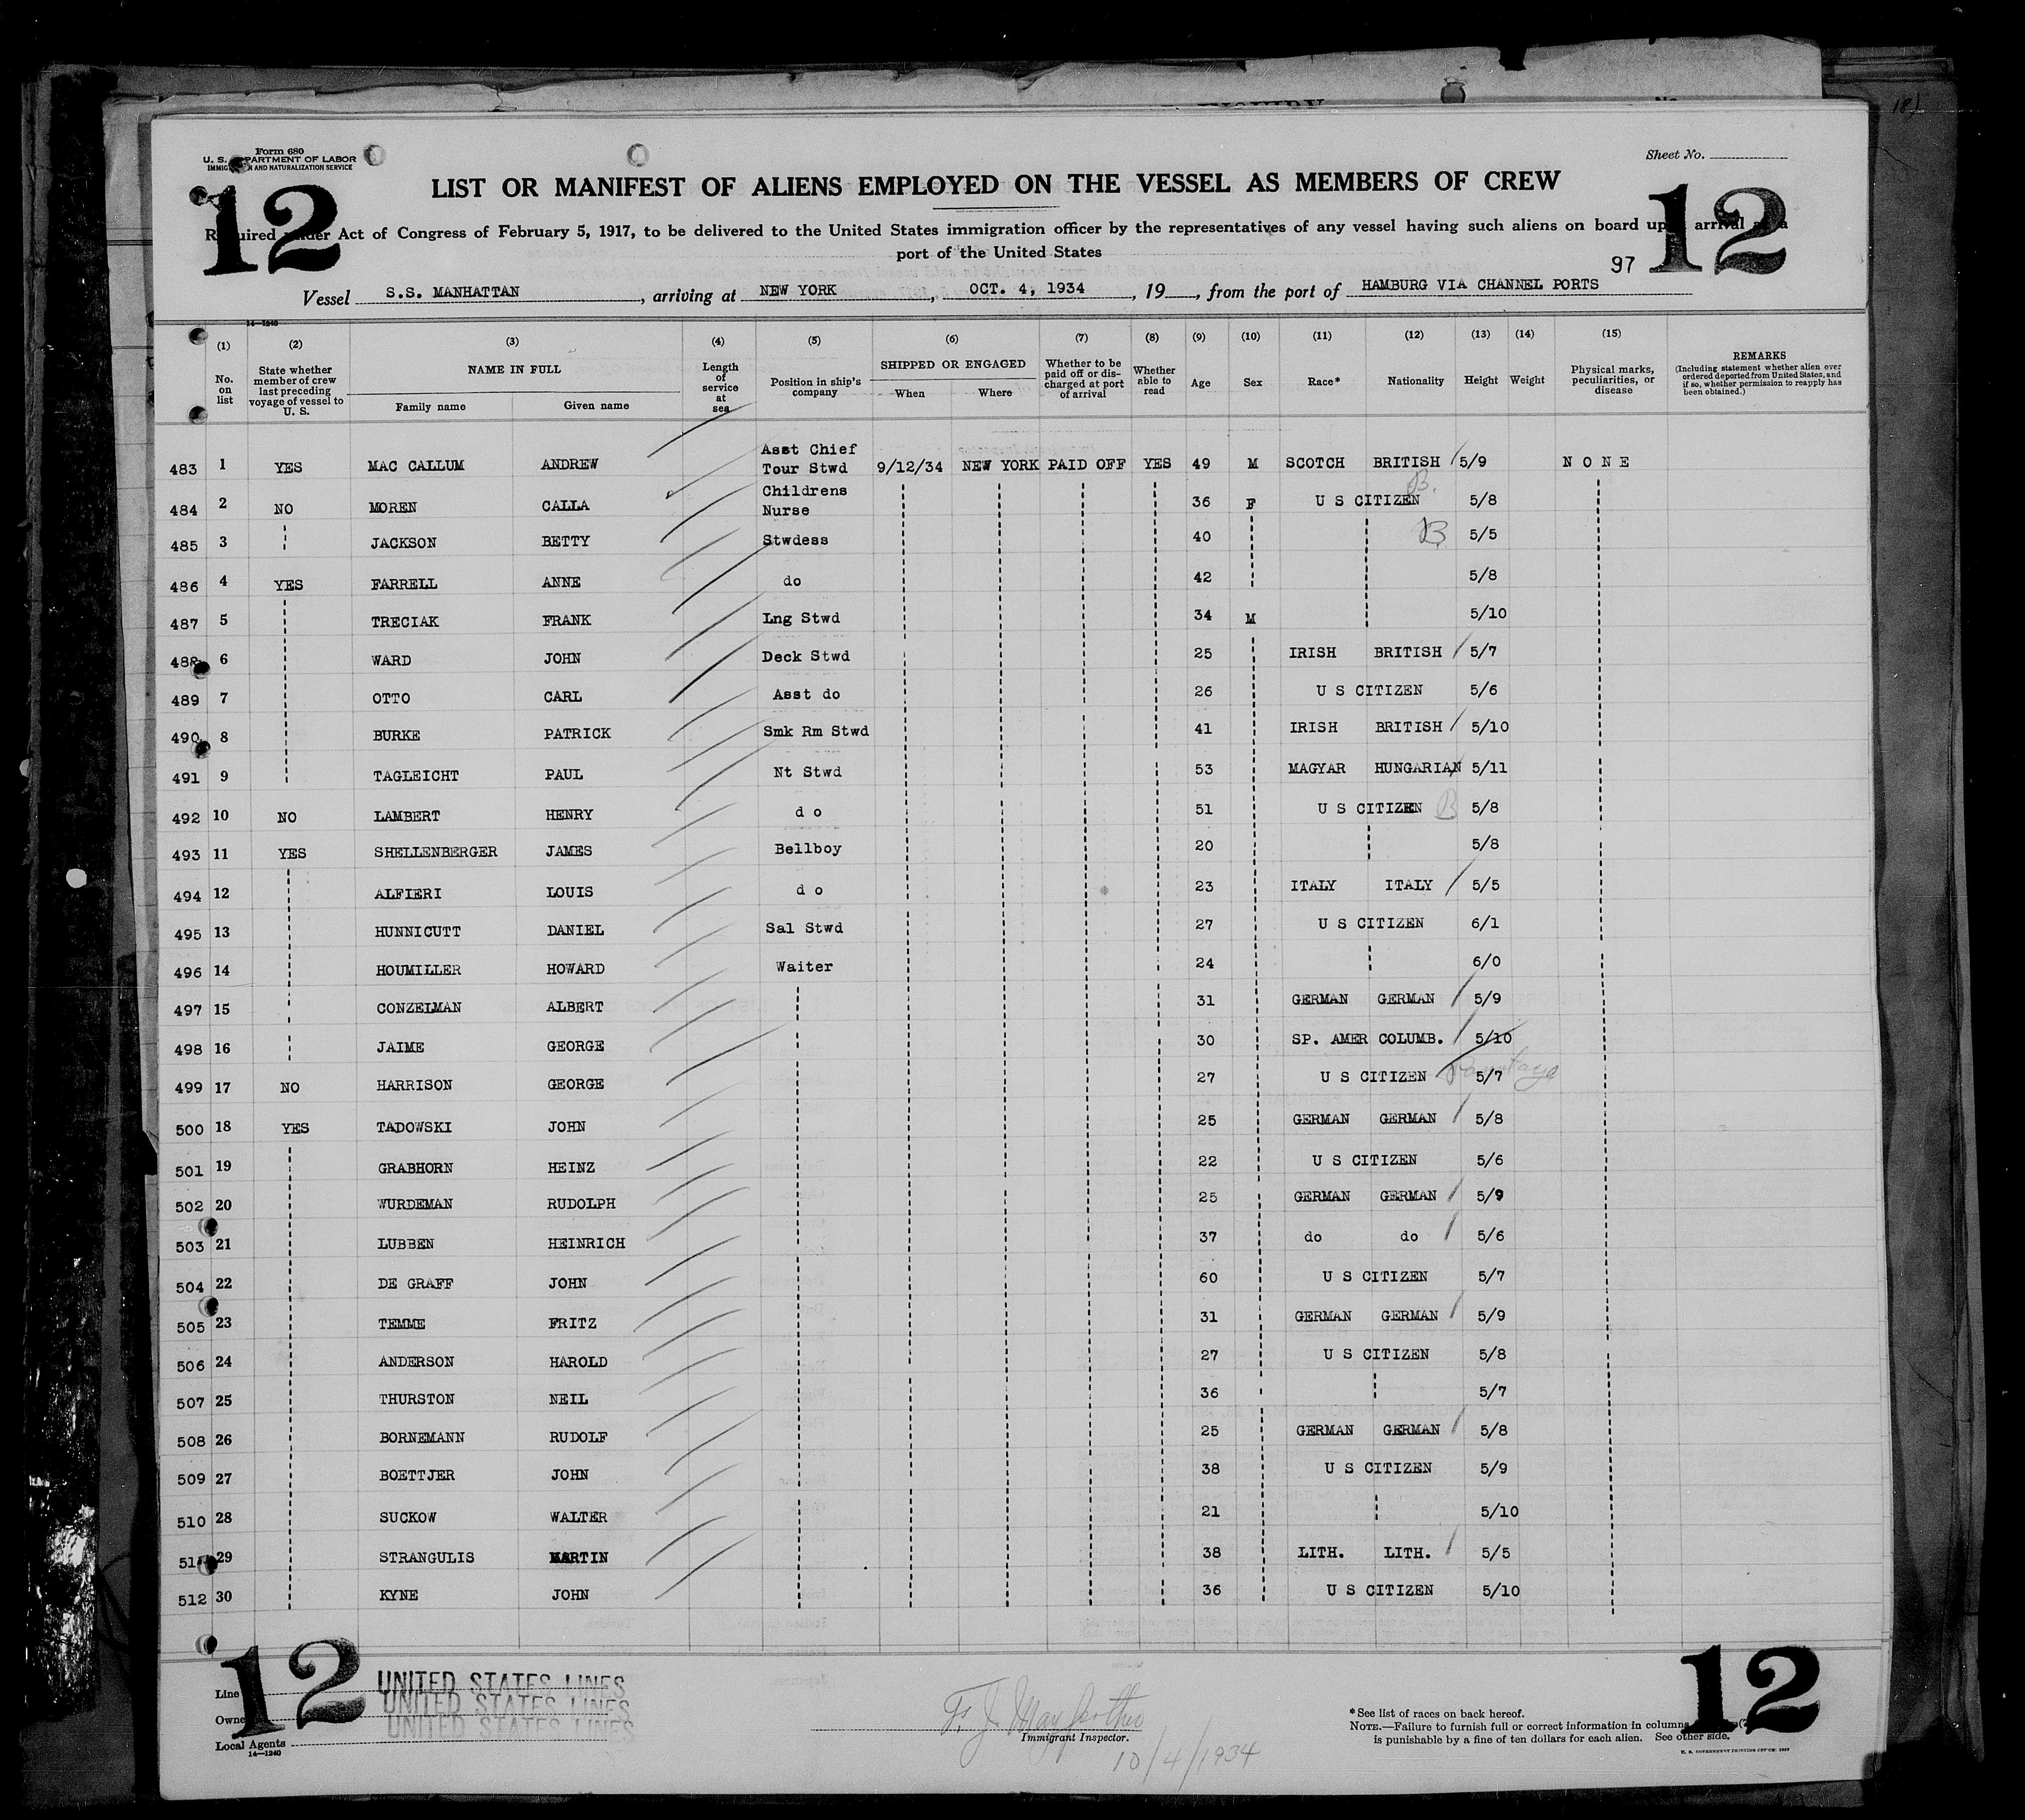 Form 680
U. S. DEPARTMENT OF LABOR
IMMIGRATION AND NATURALIZATION SERVICE
Sheet No.
12 12
LIST OR MANIFEST OF ALIENS EMPLOYED ON THE VESSEL AS MEMBERS OF CREW
Required under Act of Congress of February 5, 1917, to be delivered to the United States immigration officer by the representatives of any vessel having such aliens on board upon arrival at a
port of the United States
97
Vessel S.S. MANHATTAN, arriving at NEW YORK, OCT. 4, 1934, 19, from the port of HAMBURG VIA CHANNEL PORTS
14—1240
(1) (2) (3) (4) (5) (6) (7) (8) (9) (10) (11) (12) (13) (14) (15)
No. on list State whether member of crew last preceding voyage of vessel to U. S. NAME IN FULL Family name Given name Length of service at sea Position in ship's company SHIPPED OR ENGAGED When Where Whether to be paid off or discharged at port of arrival Whether able to read Age Sex Race* Nationality Height Weight Physical marks, peculiarities, or disease REMARKS (Including statement whether alien ever ordered deported from United States, and if so, whether permission to reapply has been obtained.)
483 1 YES MAC CALLUM ANDREW Asst Chief Tour Stwd 9/12/34 NEW YORK PAID OFF YES 49 M SCOTCH BRITISH 5/9 N O N E
484 2 NO MOREN CALLA Childrens Nurse 36 F U S CITIZEN B. 5/8
485 3 JACKSON BETTY Stwdess 40 B 5/5
486 4 YES FARRELL ANNE do 42 5/8
487 5 TRECIAK FRANK Lng Stwd 34 M 5/10
488 6 WARD JOHN Deck Stwd 25 IRISH BRITISH 5/7
489 7 OTTO CARL Asst do 26 U S CITIZEN 5/6
490 8 BURKE PATRICK Smk Rm Stwd 41 IRISH BRITISH 5/10
491 9 TAGLEICHT PAUL Nt Stwd 53 MAGYAR HUNGARIAN 5/11
492 10 NO LAMBERT HENRY d o 51 U S CITIZEN B 5/8
493 11 YES SHELLENBERGER JAMES Bellboy 20 5/8
494 12 ALFIERI LOUIS d o 23 ITALY ITALY 5/5
495 13 HUNNICUTT DANIEL Sal Stwd 27 U S CITIZEN 6/1
496 14 HOUMILLER HOWARD Waiter 24 6/0
497 15 CONZELMAN ALBERT 31 GERMAN GERMAN 5/9
498 16 JAIME GEORGE 30 SP. AMER COLUMB. 5/10
499 17 NO HARRISON GEORGE 27 U S CITIZEN 5/7
500 18 YES TADOWSKI JOHN 25 GERMAN GERMAN 5/8
501 19 GRABHORN HEINZ 22 U S CITIZEN 5/6
502 20 WURDEMAN RUDOLPH 25 GERMAN GERMAN 5/9
503 21 LUBBEN HEINRICH 37 do do 5/6
504 22 DE GRAFF JOHN 60 U S CITIZEN 5/7
505 23 TEMME FRITZ 31 GERMAN GERMAN 5/9
506 24 ANDERSON HAROLD 27 U S CITIZEN 5/8
507 25 THURSTON NEIL 36 5/7
508 26 BORNEMANN RUDOLF 25 GERMAN GERMAN 5/8
509 27 BOETTJER JOHN 38 U S CITIZEN 5/9
510 28 SUCKOW WALTER 21 5/10
511 29 STRANGULIS MARTIN 38 LITH. LITH. 5/5
512 30 KYNE JOHN 36 U S CITIZEN 5/10
12 12
Line UNITED STATES LINES
Owners UNITED STATES LINES
Local Agents UNITED STATES LINES
14—1240
F. J.
Immigrant Inspector.
10/4/1934
*See list of races on back hereof.
NOTE.—Failure to furnish full or correct information in columns
is punishable by a fine of ten dollars for each alien. See other side.
U. S. GOVERNMENT PRINTING OFFICE: